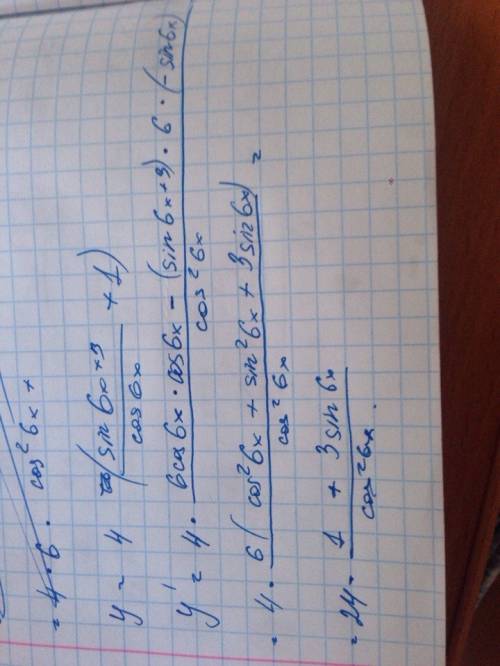 = 4 · 6 · cos²6x +
y = 4 (sin6x+3 / cos6x + 1)
y' = 4 · 6cos6x · cos6x − (sin6x+3) · 6 · (−sin6x) / cos²6x
= 4 · 6(cos²6x + sin²6x + 3sin6x) / cos²6x =
= 24 · 1 + 3sin6x / cos²6x.